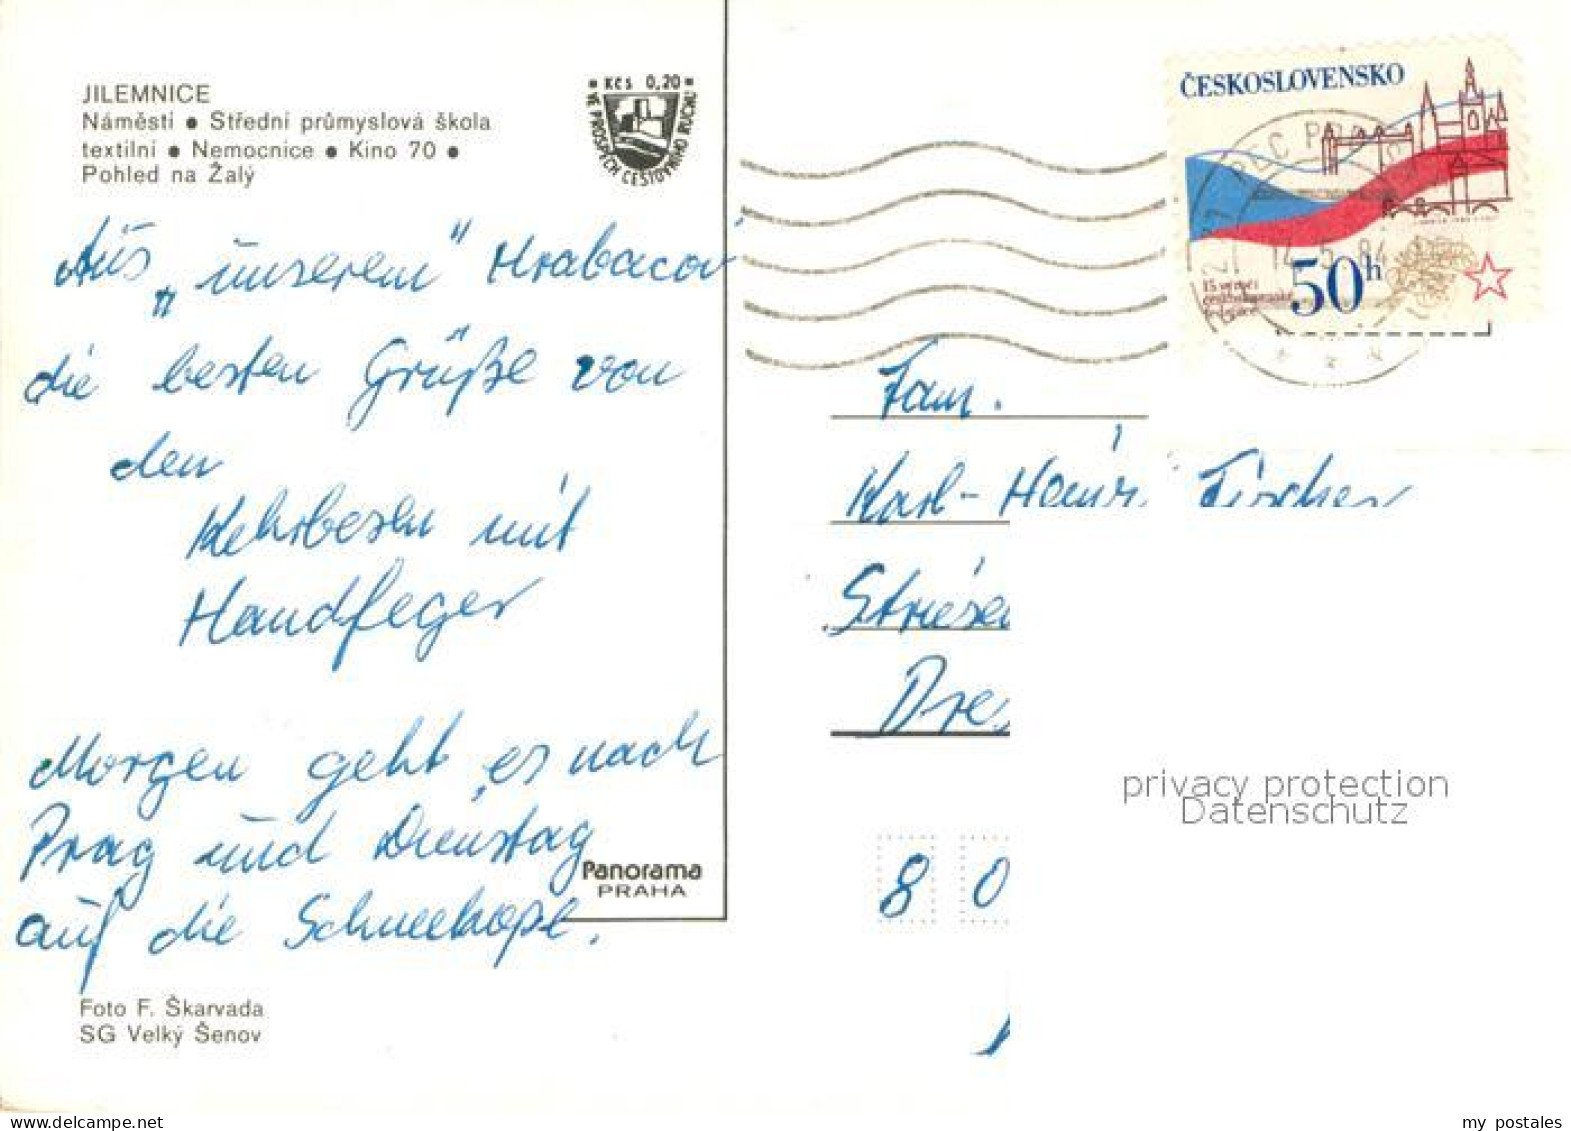 JILEMNICE
Náměstí ● Střední průmyslová škola
textilní ● Nemocnice ● Kino 70 ●
Pohled na Žalý
Kčs 0,20
VE PROSPĚCH CESTOVNÍHO RUCHU
ČESKOSLOVENSKO
50h
PEC POD
14.5.84
Aus „unserem" Hrabacov
die besten Grüße von
den
Kehrbesen mit
Handfeger
Morgen geht es nach
Prag und Dienstag
auf die Schneekope.
Fam.
Karl-Heinz Fischer
Striesen
Dre
8 0
privacy protection
Datenschutz
Panorama
PRAHA
Foto F. Škarvada
SG Velký Šenov
my postales